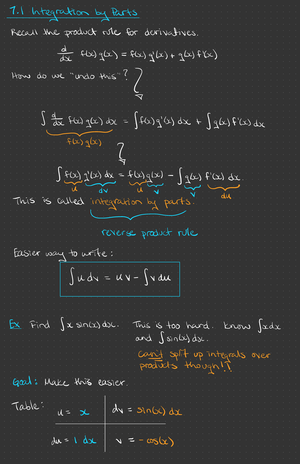 7.1 Integration by Parts
Recall the product rule for derivatives.
d/dx f(x)g(x) = f(x)g'(x) + g(x)f'(x)
How do we "undo this"?
∫ d/dx f(x)g(x) dx = ∫f(x)g'(x) dx + ∫g(x)f'(x) dx
f(x)g(x)
∫f(x)g'(x) dx = f(x)g(x) - ∫g(x)f'(x) dx
u dv u v v du
This is called integration by parts.
reverse product rule
Easier way to write:
∫u dv = uv - ∫v du
Ex Find ∫x sin(x) dx. This is too hard. Know ∫x dx
and ∫sin(x) dx.
Can't split up integrals over
products though!!
Goal: Make this easier.
Table: u = x dv = sin(x) dx
du = 1 dx v = -cos(x)